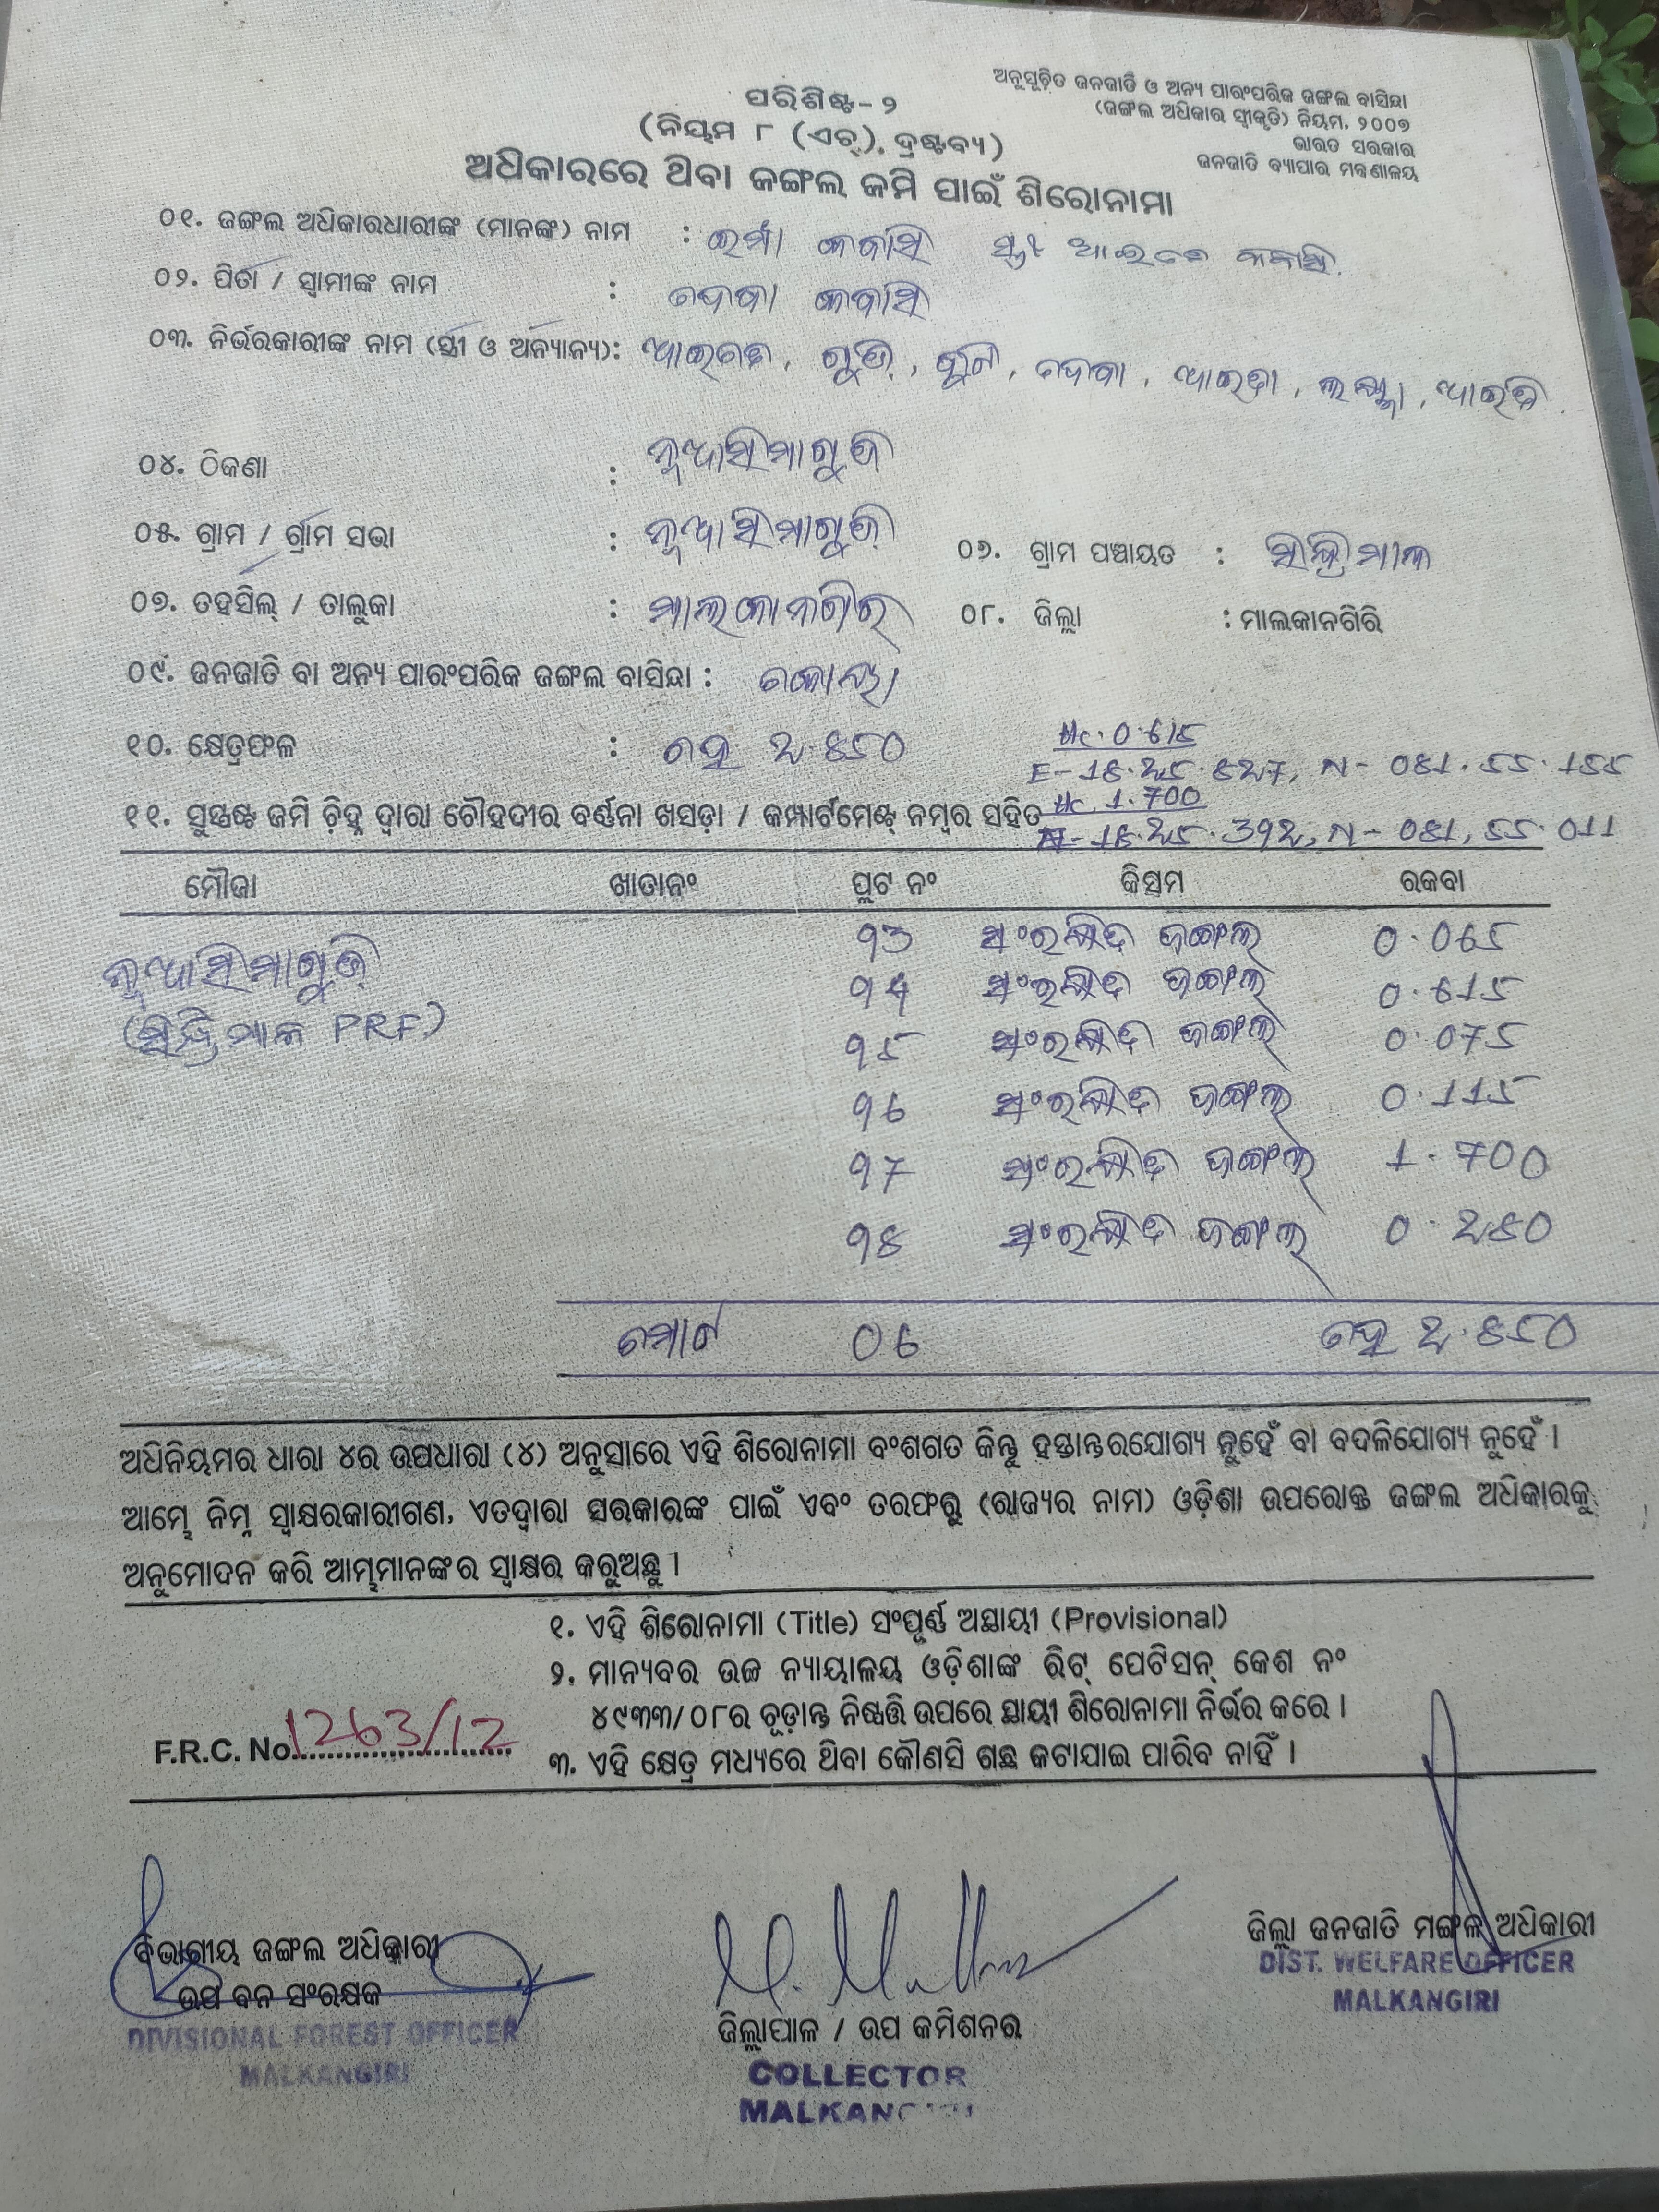 ଅନୁସୂଚିତ ଜନଜାତି ଓ ଅନ୍ୟ ପାରଂପରିକ ଜଙ୍ଗଲ ବାସିନ୍ଦା
(ଜଙ୍ଗଲ ଅଧିକାର ସ୍ୱୀକୃତି) ନିୟମ, ୨୦୦୭
ଭାରତ ସରକାର
ଜନଜାତି ବ୍ୟାପାର ମନ୍ତ୍ରଣାଳୟ
ପରିଶିଷ୍ଟ-୨
(ନିୟମ ୮ (ଏଚ୍). ଦ୍ରଷ୍ଟବ୍ୟ)
ଅଧିକାରରେ ଥିବା ଜଙ୍ଗଲ ଜମି ପାଇଁ ଶିରୋନାମା
୦୧. ଜଙ୍ଗଲ ଅଧିକାରଧାରୀଙ୍କ (ମାନଙ୍କ) ନାମ : ଇର୍ମା କବାସି ସ୍ତ୍ରୀ ଆଇତେ କବାସି
୦୨. ପିତା / ସ୍ୱାମୀଙ୍କ ନାମ : ଦେବା କବାସି
୦୩. ନିର୍ଭରକାରୀଙ୍କ ନାମ (ସ୍ତ୍ରୀ ଓ ଅନ୍ୟାନ୍ୟ): ଆଇତେ, ଦେବା, ଆଇତା,
୦୪. ଠିକଣା : ନୂଆସିମାଗୁଡ଼ି
୦୫. ଗ୍ରାମ / ଗ୍ରାମ ସଭା : ନୂଆସିମାଗୁଡ଼ି ୦୬. ଗ୍ରାମ ପଞ୍ଚାୟତ : ସିନ୍ଧ୍ରିମାଳ
୦୭. ତହସିଲ୍ / ତାଲୁକା : ମାଲକାନଗିରି ୦୮. ଜିଲ୍ଲା : ମାଲକାନଗିରି
୦୯. ଜନଜାତି ବା ଅନ୍ୟ ପାରଂପରିକ ଜଙ୍ଗଲ ବାସିନ୍ଦା : କୋୟା
୧୦. କ୍ଷେତ୍ରଫଳ : ହେ 2.850
Hc. 0.615
E-18.25.827, N- 081.55.155
୧୧. ସୁସ୍ପଷ୍ଟ ଜମି ଚିହ୍ନ ଦ୍ୱାରା ଚୌହଦୀର ବର୍ଣ୍ଣନା ଖସଡ଼ା / କମ୍ପାର୍ଟମେଣ୍ଟ୍ ନମ୍ବର ସହିତ Hc. 1.700
-18.25.392, N- 081, 55.011
ମୌଜା ଖାତାନଂ ପ୍ଲଟ ନଂ କିସମ ରକବା
ନୂଆସିମାଗୁଡ଼ି 93 ସଂରକ୍ଷିତ ଜଙ୍ଗଲ 0.065
94 ସଂରକ୍ଷିତ ଜଙ୍ଗଲ 0.615
(ସିନ୍ଧ୍ରିମାଳ PRF) 95 ସଂରକ୍ଷିତ ଜଙ୍ଗଲ 0.075
96 ସଂରକ୍ଷିତ ଜଙ୍ଗଲ 0.115
97 ସଂରକ୍ଷିତ ଜଙ୍ଗଲ 1.700
98 ସଂରକ୍ଷିତ ଜଙ୍ଗଲ 0.280
ମୋଟ 06 ହେ 2.850
ଅଧିନିୟମର ଧାରା ୪ର ଉପଧାରା (୪) ଅନୁସାରେ ଏହି ଶିରୋନାମା ବଂଶଗତ କିନ୍ତୁ ହସ୍ତାନ୍ତରଯୋଗ୍ୟ ନୁହେଁ ବା ବଦଳିଯୋଗ୍ୟ ନୁହେଁ ।
ଆମ୍ଭେ ନିମ୍ନ ସ୍ୱାକ୍ଷରକାରୀଗଣ, ଏତଦ୍ୱାରା ସରକାରଙ୍କ ପାଇଁ ଏବଂ ତରଫରୁ (ରାଜ୍ୟର ନାମ) ଓଡ଼ିଶା ଉପରୋକ୍ତ ଜଙ୍ଗଲ ଅଧିକାରକୁ
ଅନୁମୋଦନ କରି ଆମ୍ଭମାନଙ୍କର ସ୍ୱାକ୍ଷର କରୁଅଛୁ ।
୧. ଏହି ଶିରୋନାମା (Title) ସଂପୂର୍ଣ୍ଣ ଅସ୍ଥାୟୀ (Provisional)
୨. ମାନ୍ୟବର ଉଚ୍ଚ ନ୍ୟାୟାଳୟ ଓଡ଼ିଶାଙ୍କ ରିଟ୍ ପେଟିସନ୍ କେଶ ନଂ
୪୯୩୩/୦୮ର ଚୂଡ଼ାନ୍ତ ନିଷ୍ପତ୍ତି ଉପରେ ସ୍ଥାୟୀ ଶିରୋନାମା ନିର୍ଭର କରେ ।
F.R.C. No. 1263/12
୩. ଏହି କ୍ଷେତ୍ର ମଧ୍ୟରେ ଥିବା କୌଣସି ଗଛ କଟାଯାଇ ପାରିବ ନାହିଁ ।
ବିଭାଗୀୟ ଜଙ୍ଗଲ ଅଧିକାରୀ
ଉପ ବନ ସଂରକ୍ଷକ
DIVISIONAL FOREST OFFICER
MALKANGIRI
ଜିଲ୍ଲାପାଳ / ଉପ କମିଶନର
COLLECTOR
MALKANGIRI
ଜିଲ୍ଲା ଜନଜାତି ମଙ୍ଗଳ ଅଧିକାରୀ
DIST. WELFARE OFFICER
MALKANGIRI